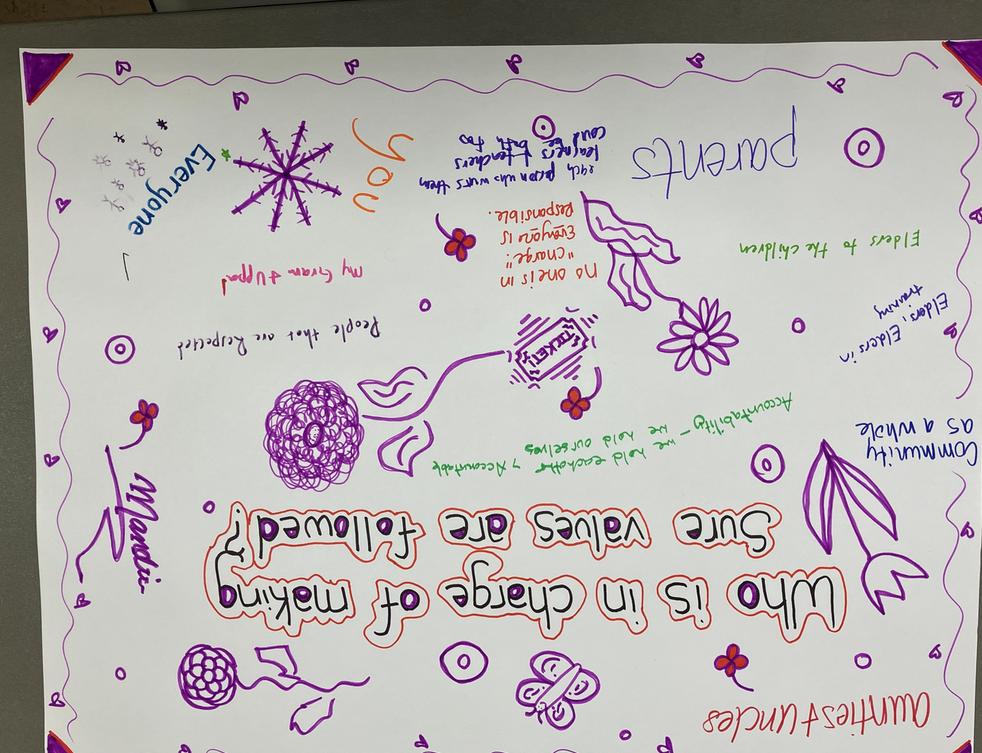 aunties + uncles
Who is in charge of making
Sure values are followed?
Mandii
Community
as a whole
Accountability - we hold eachother & Accountable
we hold ourselves
Elders, Elders in
training
TICKET!
People that are Respected
Elders to the children
no one is in
"charge".
Everyone is
Responsible.
My Gram + Uppa!
parents
each person who wurs them
could be both too
learners & teachers
you
Everyone